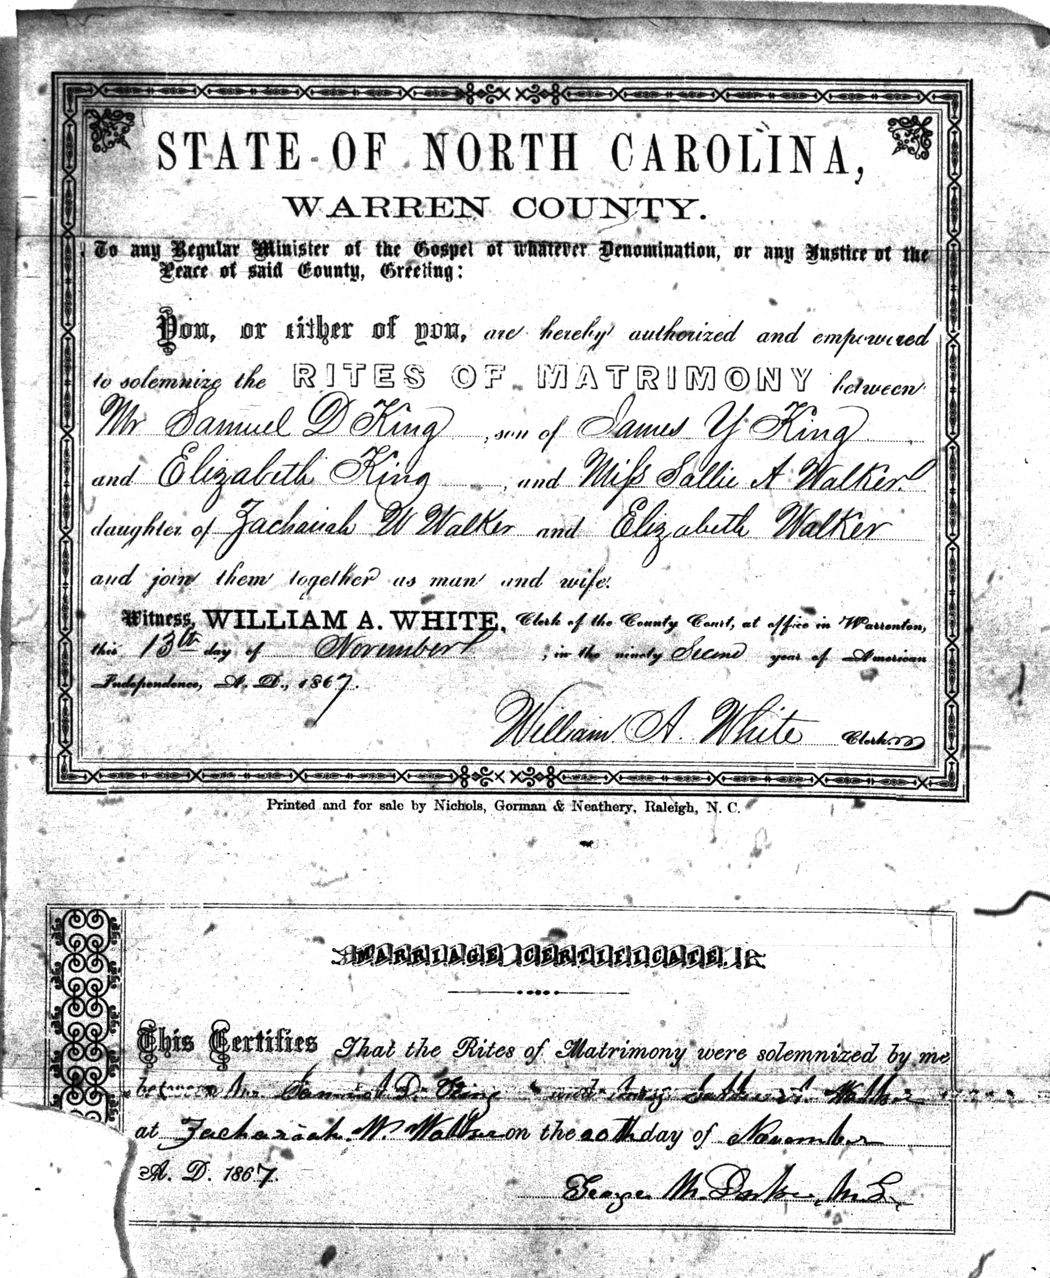 STATE OF NORTH CAROLINA,
WARREN COUNTY.
To any Regular Minister of the Gospel of whatever Denomination, or any Justice of the
Peace of said County, Greeting:
You, or either of you, are hereby authorized and empowered
to solemnize the RITES OF MATRIMONY between
Mr Samuel D King, son of James Y King
and Elizabeth King, and Miss Sallie A Walker
daughter of Zachariah W Walker and Elizabeth Walker
and join them together as man and wife.
Witness, WILLIAM A. WHITE, Clerk of the County Court, at office in Warrenton,
this 13th day of November, in the ninety Second year of American
Independence, A. D., 1867.
William A. White Clerk.
Printed and for sale by Nichols, Gorman & Neathery, Raleigh, N. C.
MARRIAGE CERTIFICATE.
This Certifies That the Rites of Matrimony were solemnized by me
between Mr. Samuel D. King and Miss Sallie A. Walker
at Zachariah W. Walker on the 20th day of November
A. D. 1867.
George M.